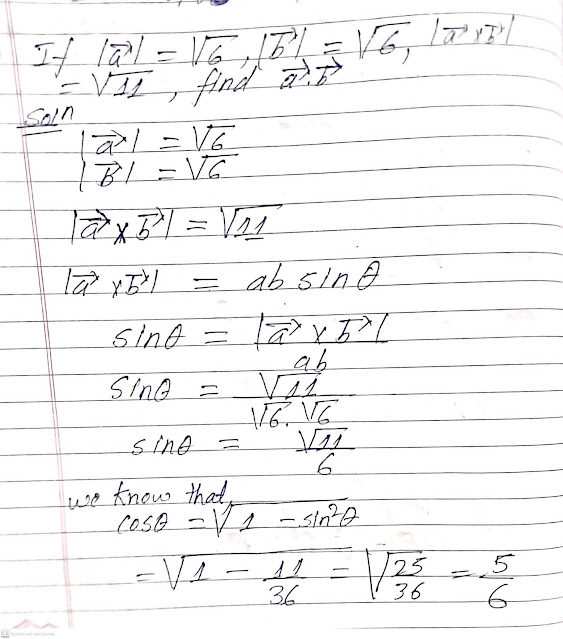 If |a⃗| = √6, |b⃗| = √6, |a⃗ x b⃗|
= √11, find a⃗.b⃗
Soln
|a⃗| = √6
|B| = √6
|a⃗ x b⃗| = √11
|a⃗ x b⃗| = ab sinθ
sinθ = |a⃗ x b⃗|
ab
sinθ = √11
√6. √6
sinθ = √11
6
we know that,
cosθ = √1 - sin²θ
= √1 - 11/36 = √25/36 = 5/6